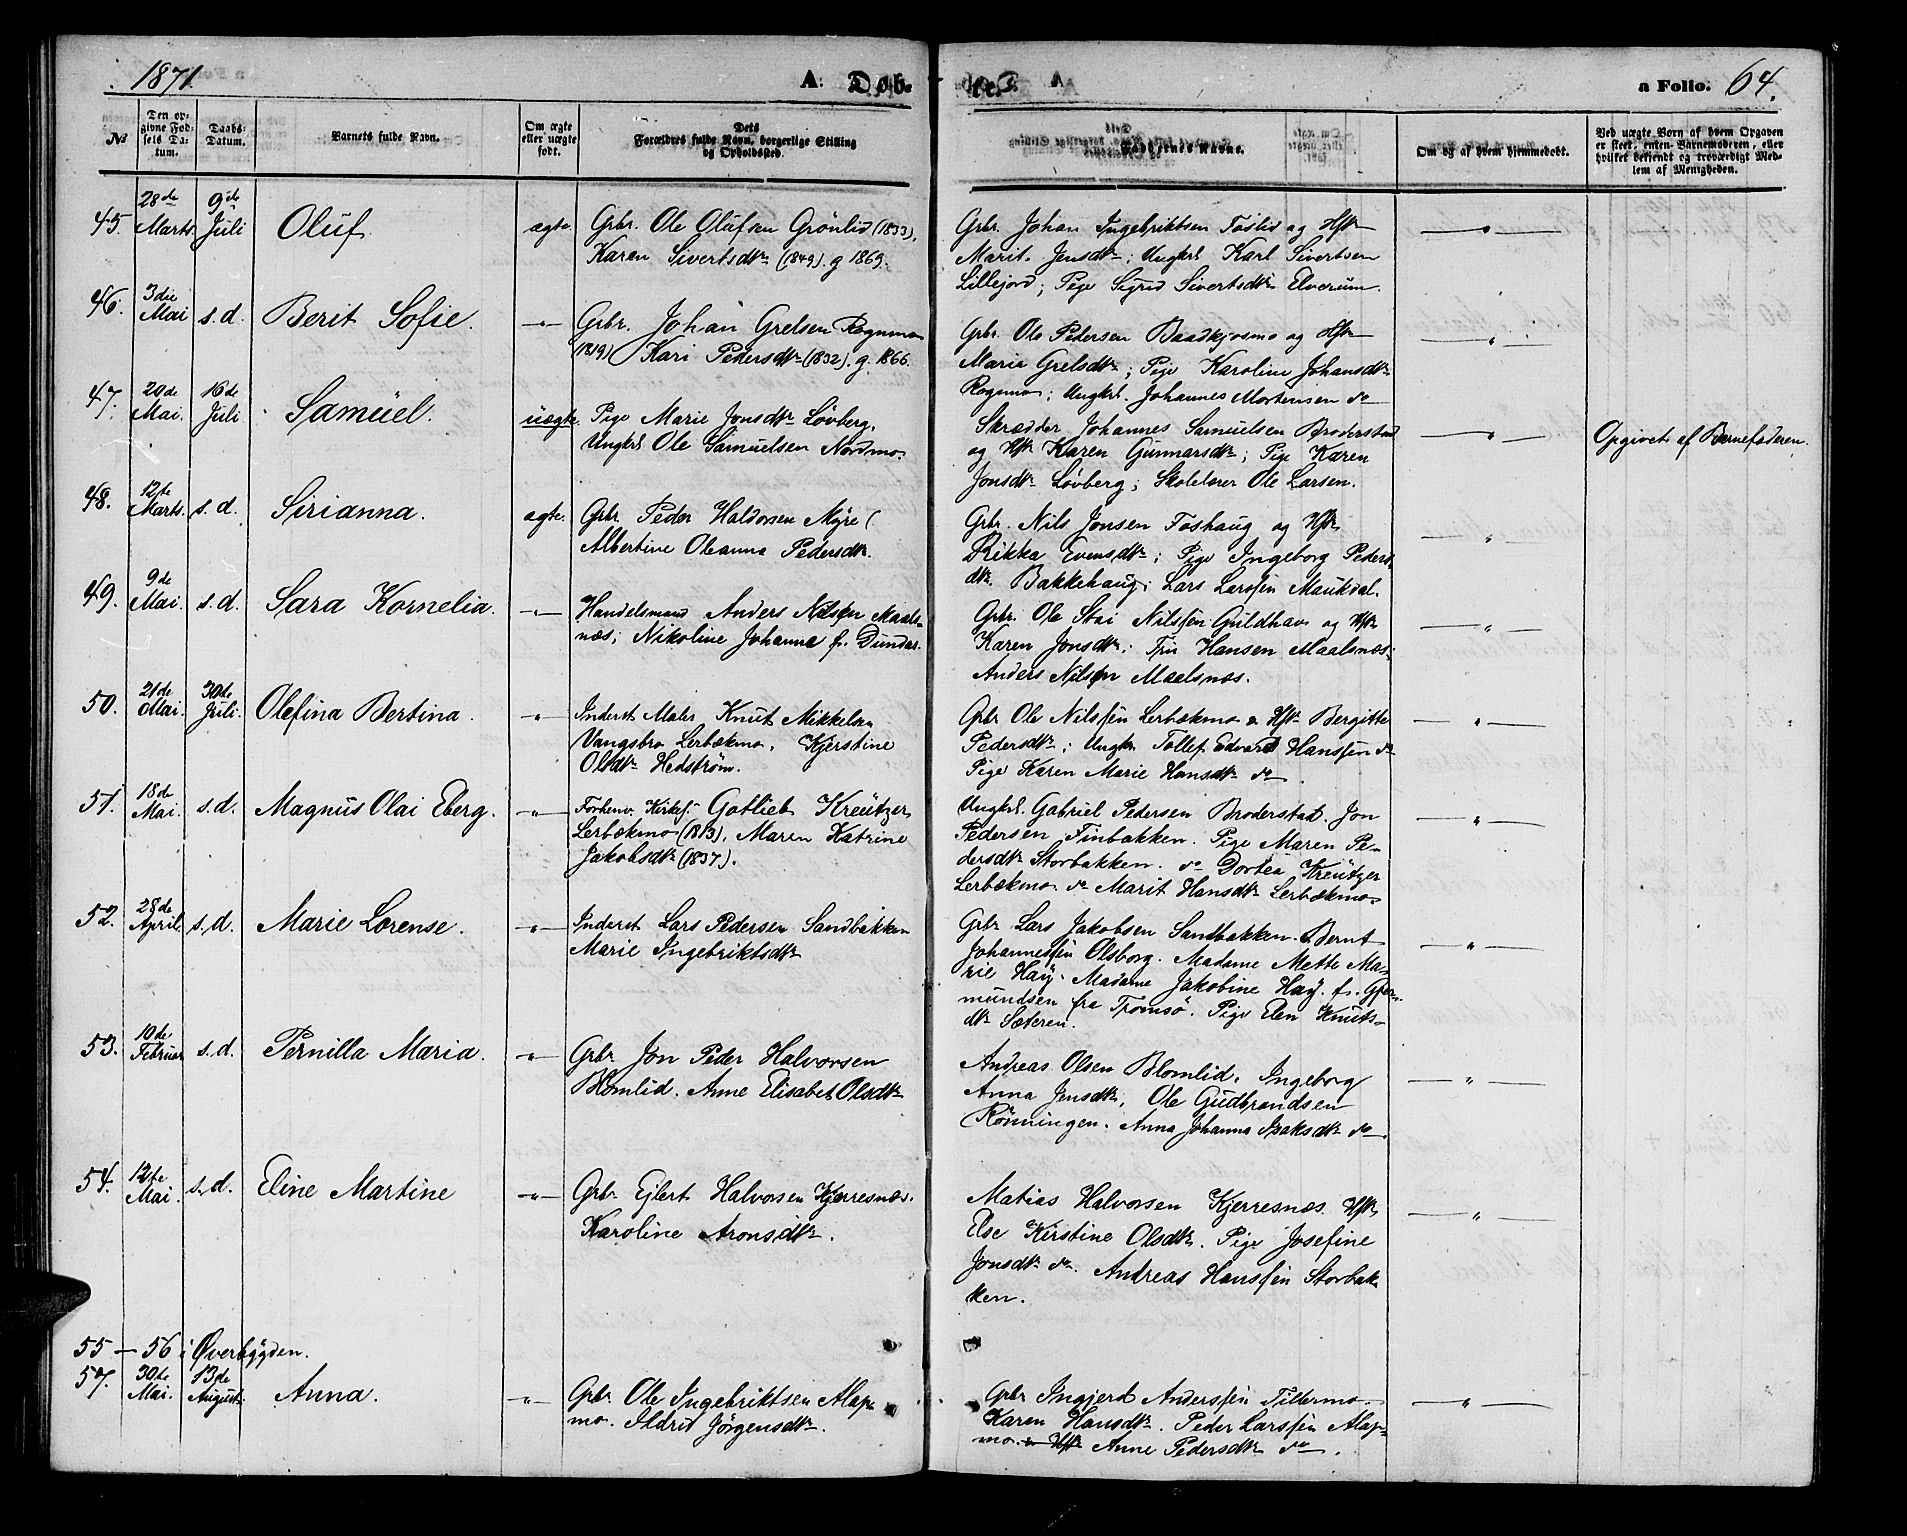 1871.
A. Døb-
te.
a Folio. 64.
No
Den opgivne Fødsels Datum.
Daabs-Datum.
Barnets fulde Navn.
Om ægte eller uægte født.
Dets Forældres fulde Navn, borgerlige Stilling og Opholdssted.
Faddernes Navne.
Om og af hvem hjemmedøbt.
Ved uægte Børn af hvem Opgaven er skeet, enten Barnemoderen, eller hvilket bekjendt og troværdigt Medlem af Menigheden.
45. 28de Marts 9de Juli Oluf. ægte.
Grbr. Ole Olufsen Grønlid (1833),
Karen Sivertsdtr (1849). g 1869.
Grbr. Johan Ingebriktsen Foslid og Hstr
Marit Jensdtr; Ungkrl Karl Sivertsen
Lillejord; Pige Sigrid Sivertsdtr Elverum.
46. 3die Mai s.d. Berit Sofie. — " —
Grbr. Johan Grelsen Rognmo
(1819) Kari Pedersdtr (1832). g. 1866.
Grbr. Ole Pedersen Baadkjosmo og Hstr
Maria Grelsdtr; Pige Karoline Johansdtr
Rognmo; Ungkrl. Johannes Mortensen do
47. 20de Mai. 16de Juli Samuel. uægte.
Pige Marie Jonsdtr Løvberg,
Ungkrl Ole Samuelsen Nordmo.
Skrædder Johannes Samuelsen Broderstad
og Hstr Karen Gunnarsdtr; Pige Karen
Jonsdtr Løvberg; Skolelærer Ole Larsen.
— " —
Opgivet af Barnefaderen.
48. 12te Marts. s.d. Sirianna. ægte.
Grbr Peder Haldorsen Myre (
Albertine Oleanna Pedersdtr.
Grbr. Nils Jonsen Foshaug og Hstr
Rikka Evensdtr; Pige Ingeborg Peders-
dtr. Bakkehaug; Lars Larssen Maukdal.
49. 9de Mai. s.d. Sara Kornelia. — " —
Handelsmand Anders Nilsen Maals-
næs; Nikoline Johanna f. Dundas.
Grbr. Ole Stai Nilssen Guldhav og Hstr
Karen Jonsdtr; Fru Hansen Maalsnæs;
Anders Nilsen Maalsnæs.
50. 21de Mai. 30te Juli. Olefina Bertina. — " —
Inderst Maler Knut Mikkelsen
Vangsbro Lerbækmo, Kjerstine
Olsdtr Hedstrøm.
Grbr Ole Nilssen Lerbækmo & Hstr Bergitte
Pedersdtr; Ungkr Tollef Edvard Hanssen do
Pige Karen Marie Hansdtr do
51. 18de Mai. s.d. Magnus Olai Eberg. — " —
Forhenv. Kirkes. Gotlieb Kreützer
Lerbækmo (1813), Maren Katrine
Jakobsdtr (1837).
Ungkrl. Gabriel Pedersen Broderstad. Jon
Pedersen Finbakken. Pige Maren Pe-
dersdtr Storbakken. do Dortea Kreützer
Lerbækmo do Marit Hansdtr Lerbækmo
52. 28de April. s.d. Marie Lorense. — " —
Inderst Lars Pedersen Sandbakken
Marie Ingebriktsdtr
Grbr Lars Jakobsen Sandbakken. Bernt
Johannessen Olsborg. Madame Mette Ma-
rie Hay. Madame Jakobine Hay. f. Gjer-
mundsen fra Tromsö. Pige Elen Knuts-
dtr Sæteren.
53. 10de Februar s.d. Pernilla Maria. — " —
Grbr Jon Peder Halvorsen
Blomlid. Anne Elisabet Olsdtr
Andreas Olsen Blomlid. Ingeborg
Anna Jensdtr, Ole Gudbrandsen
Rönningen. Anna Johanna Isaksdtr do
54. 12te Mai. s.d. Eline Martine — " —
Grbr Ejlert Halvorsen Kjerresnæs.
Karoline Aronsdtr.
Matias Halvorsen Kjerresnæs. Hstr
Else Kirstine Olsdtr. Pige Josefine
Jonsdtr do. Andreas Hanssen Storbak-
ken.
55 — 56 i Øverbygden.
57. 30te Mai. 13de August. Anna. — " —
Grbr Ole Ingebriktsen Alap-
mo. Ildrid Jørgensdtr.
Grbr Ingjerd Anderssen Tillermo.
Karen Hansdtr. Peder Larssen Alap-
mo. & Hstr Anne Pedersdtr do.